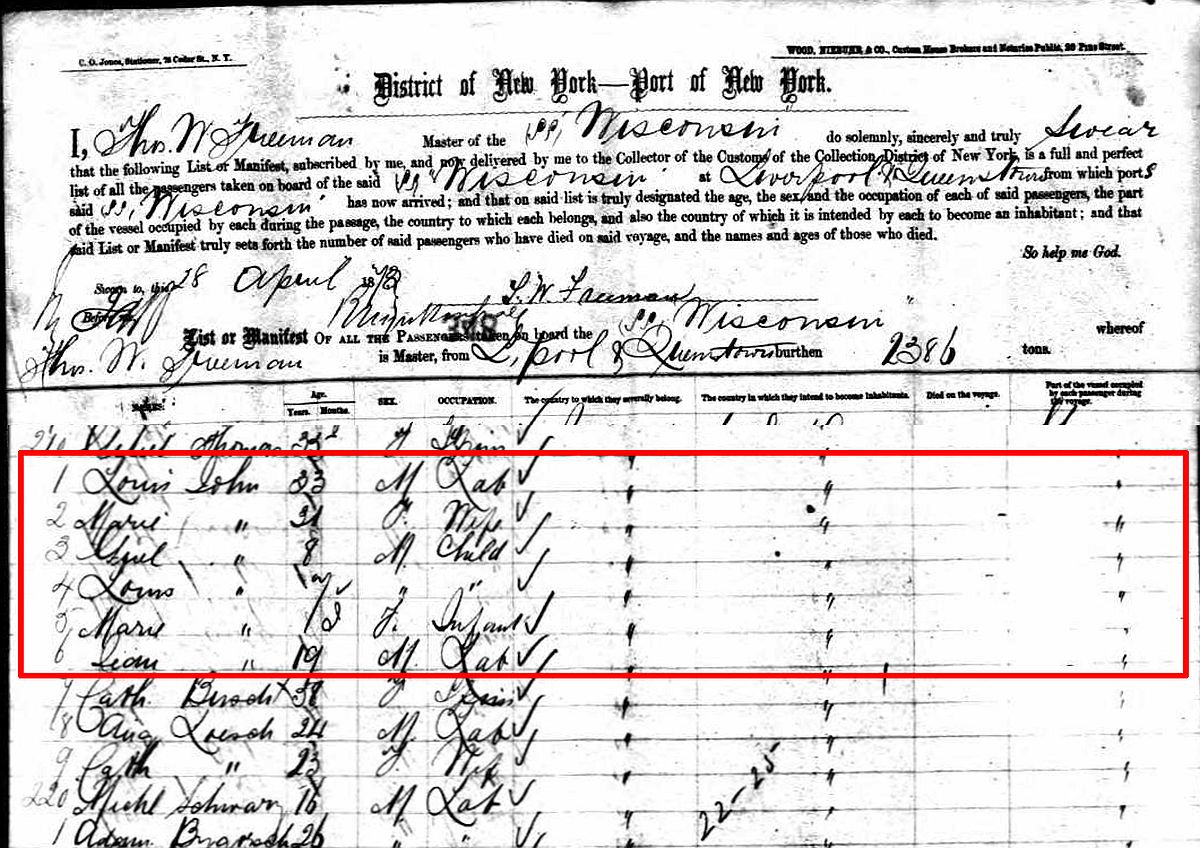 C. O. Jones, Stationer, 78 Cedar St., N. Y.
WOOD, NIEBUHR, & CO., Custom House Brokers and Notaries Public, 20 Pine Street.
District of New York—Port of New York.
I, Thos. W. Freeman Master of the SS, Wisconsin do solemnly, sincerely and truly Swear
that the following List or Manifest, subscribed by me, and now delivered by me to the Collector of the Customs of the Collection District of New York, is a full and perfect
list of all the passengers taken on board of the said SS "Wisconsin" at Liverpool & Queenstown from which ports
said SS, Wisconsin" has now arrived; and that on said list is truly designated the age, the sex, and the occupation of each of said passengers, the part
of the vessel occupied by each during the passage, the country to which each belongs, and also the country of which it is intended by each to become an inhabitant; and that
said List or Manifest truly sets forth the number of said passengers who have died on said voyage, and the names and ages of those who died.
So help me God.
Sworn to, this 28 April 187
Before me, T. W. Freeman
List or Manifest OF ALL THE PASSENGERS taken on board the SS, Wisconsin whereof
Thos. W. Freeman is Master, from L,pool & Queenstown burthen 2386 tons.
NAMES. Age. Years. Months. SEX. OCCUPATION. The country to which they severally belong. The country in which they intend to become inhabitants. Died on the voyage. Part of the vessel occupied by each passenger during the voyage.
210 Thomas F
1 Louis John 33 M Lab " " "
2 Marie " 31 F. Wife " " "
3 " 8 M. Child " " "
4 Louis " " " " " "
5 Marie " F. Infant " " "
6 " 19 M. Lab " " "
7 Cath. 38 F " " "
8 Aug Loesch 24 M. Lab " " "
9 Cath " 23 F Wife " " "
220 Michl Schwarz 16 M Lab " 22-25 " "
1 Adam 26 " " "